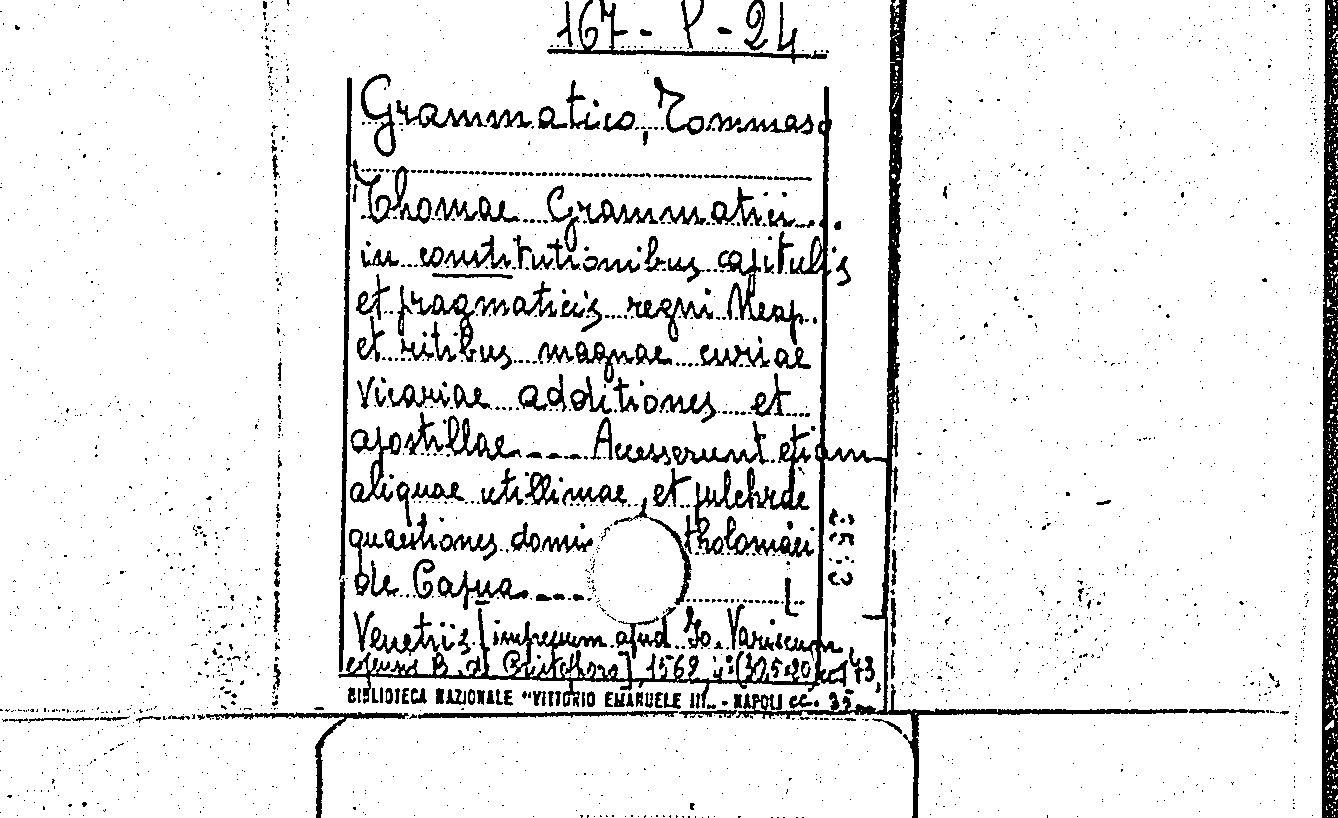 167-P-24
Grammatico, Tommaso
Thomae Grammatici...
in constitutionibus capitulis
et pragmaticis regni Neap.
et ritibus magnae curiae
Vicariae additiones et
apostillae.... Accesserunt etiam
aliquae utillimae, et pulchrae
quaestiones domi tholomaei
de Capua....
Venetiis [impressum apud Jo. Variscum,
1562, 173,
BIBLIOTECA NAZIONALE "VITTORIO EMANUELE III" - NAPOLI cc. 35